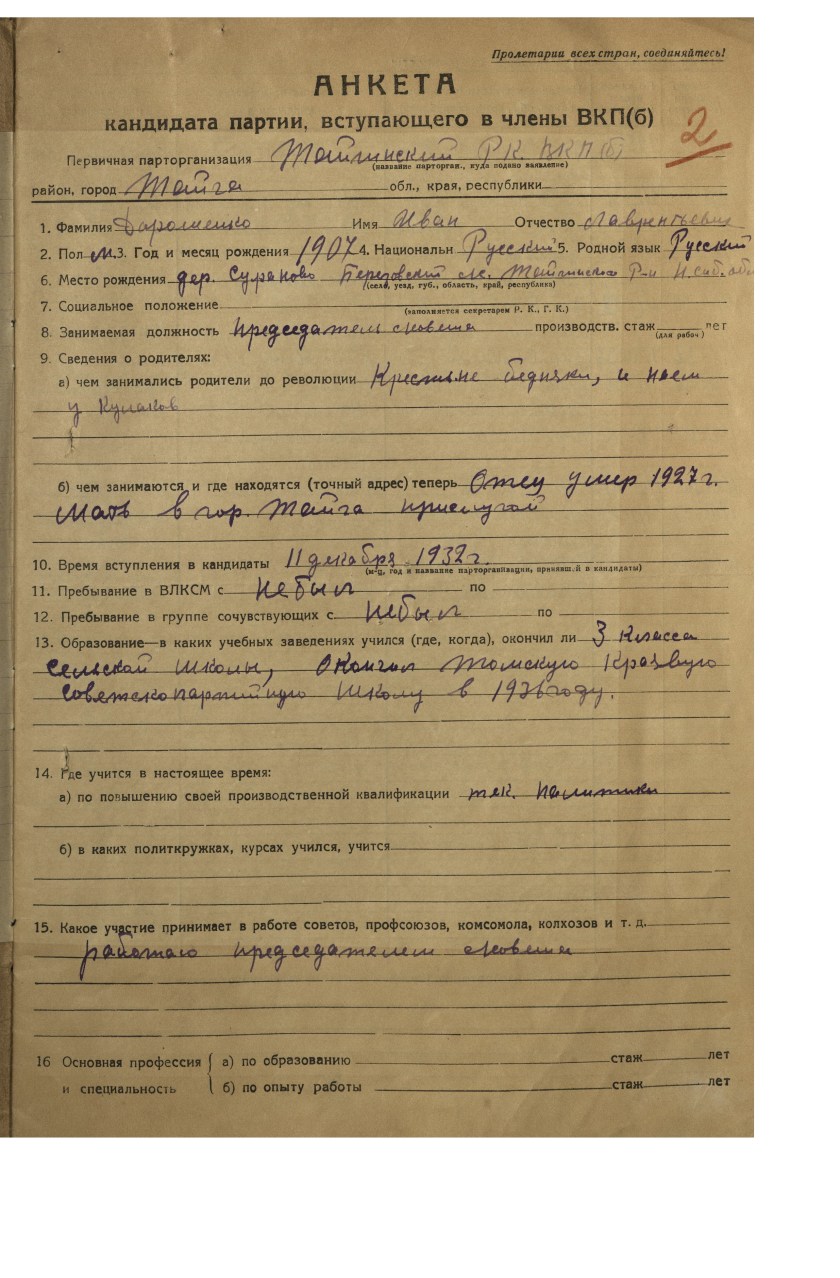 Пролетарии всех стран, соединяйтесь!
АНКЕТА
кандидата партии, вступающего в члены ВКП(б)
2
Первичная парторганизация Тайгинский РК ВКП(б)
(название парторган., куда подано заявление)
район, город Тайга обл., края, республики
1. Фамилия Дарошенко Имя Иван Отчество Лаврентьевич
2. Пол М. 3. Год и месяц рождения 1907 4. Национальн Русский 5. Родной язык Русский
6. Место рождения дер. Сураново Тайгинского Р-н Н.сиб. обл
(село, уезд, губ., область, край, республика)
7. Социальное положение
(заполняется секретарем Р. К., Г. К.)
8. Занимаемая должность председатель производств. стаж лет
(для рабоч)
9. Сведения о родителях:
а) чем занимались родители до революции Крестьяне бедняки, и наем
у Кулаков
б) чем занимаются и где находятся (точный адрес) теперь Отец умер 1927 г.
Мать в гор. Тайга прислугой
10. Время вступления в кандидаты 11 декабря 1932 г.
(м-ц, год и название парторганизации, принявш.й в кандидаты)
11. Пребывание в ВЛКСМ с небыл по
12. Пребывание в группе сочувствующих с. небыл по
13. Образование—в каких учебных заведениях учился (где, когда), окончил ли 3 класса
сельской школы, окончил Томскую Краевую
советскопартийную школу в 1936 году.
14. Где учится в настоящее время:
а) по повышению своей производственной квалификации
б) в каких политкружках, курсах учился, учится
15. Какое участие принимает в работе советов, профсоюзов, комсомола, колхозов и т. д.
работаю председателем
16 Основная профессия а) по образованию стаж лет
и специальность б) по опыту работы стаж лет